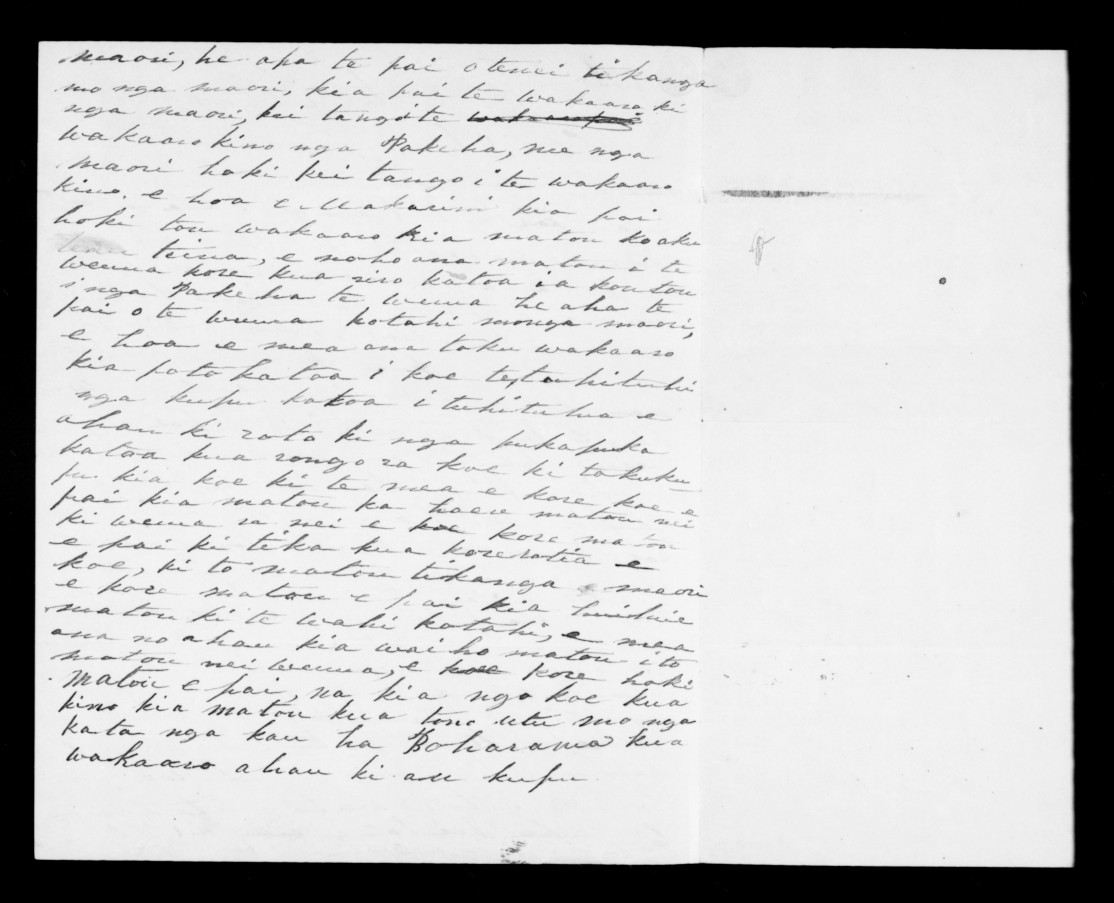 maori, he aha te pai o tenei tikanga
mo nga maori, kia pai te wakaaro ki
nga maori, kei tango i te wakaaro pai
wakaaro kino nga Pakeha, me nga
maori hoki kei tango i te wakaaro
kino. e hoa e Makarini kia pai
hoki tou wakaaro kia matou ko aku
teina, e noho ana matou i te
wenua kore kua riro katoa ia koutou
i nga Pakeha te wenua he aha te
pai o te wenua kotahi monga maori,
e hoa e mea ana toku wakaaro
kia poto katoa i koe te tuhituhi
nga kupu katoa i tuhituhia e
ahau ki roto ki nga pukapuka
katoa kua rongo ra koe ki takuku-
pu kia koe ki te mea e kore koe e
pai kia matou ka haere matou nei
ki wenua ra nei e koe kore matou
e pai ki tika kua korerotia e
koe, ki to matou tikanga maori
e kore matou e pai kia huihuie
matou ki te wahi kotahi, e mea
ana no ahau kia waiho matou i to
matou nei wenua, e koe kore hoki
matou e pai, na kia ngo koe kua
kino kia matou kua tono utu mo nga
kata nga kau ha Boharama kua
wakaaro ahau ki au kupu